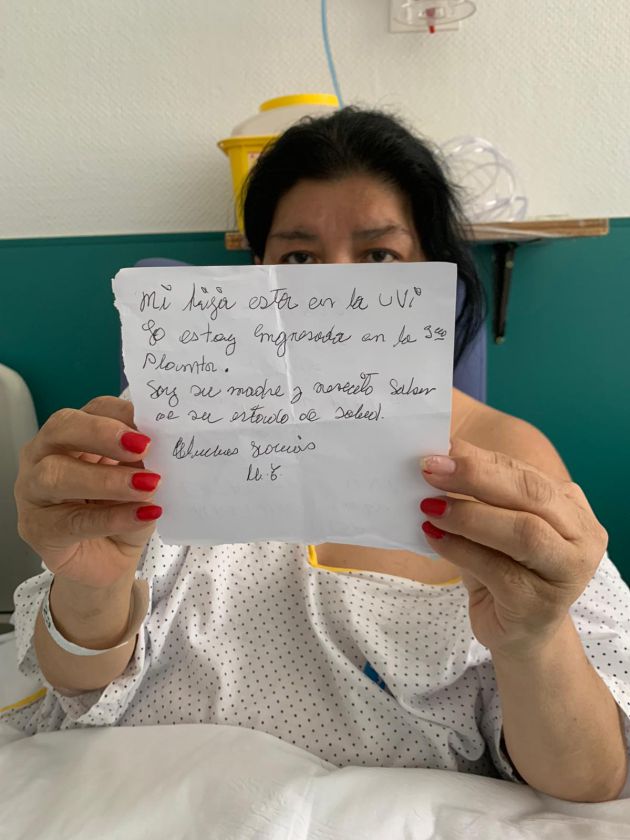 Mi hija esta en la UVi
Yo estoy Ingresada en la 3era
Planta.
Soy su madre y necesito saber
de su estado de salud.
Muchas gracias